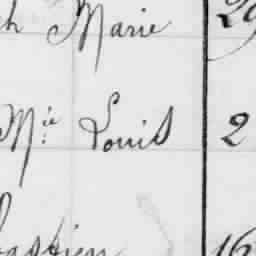 Marie 29
Mie Louis 2
bastien 16